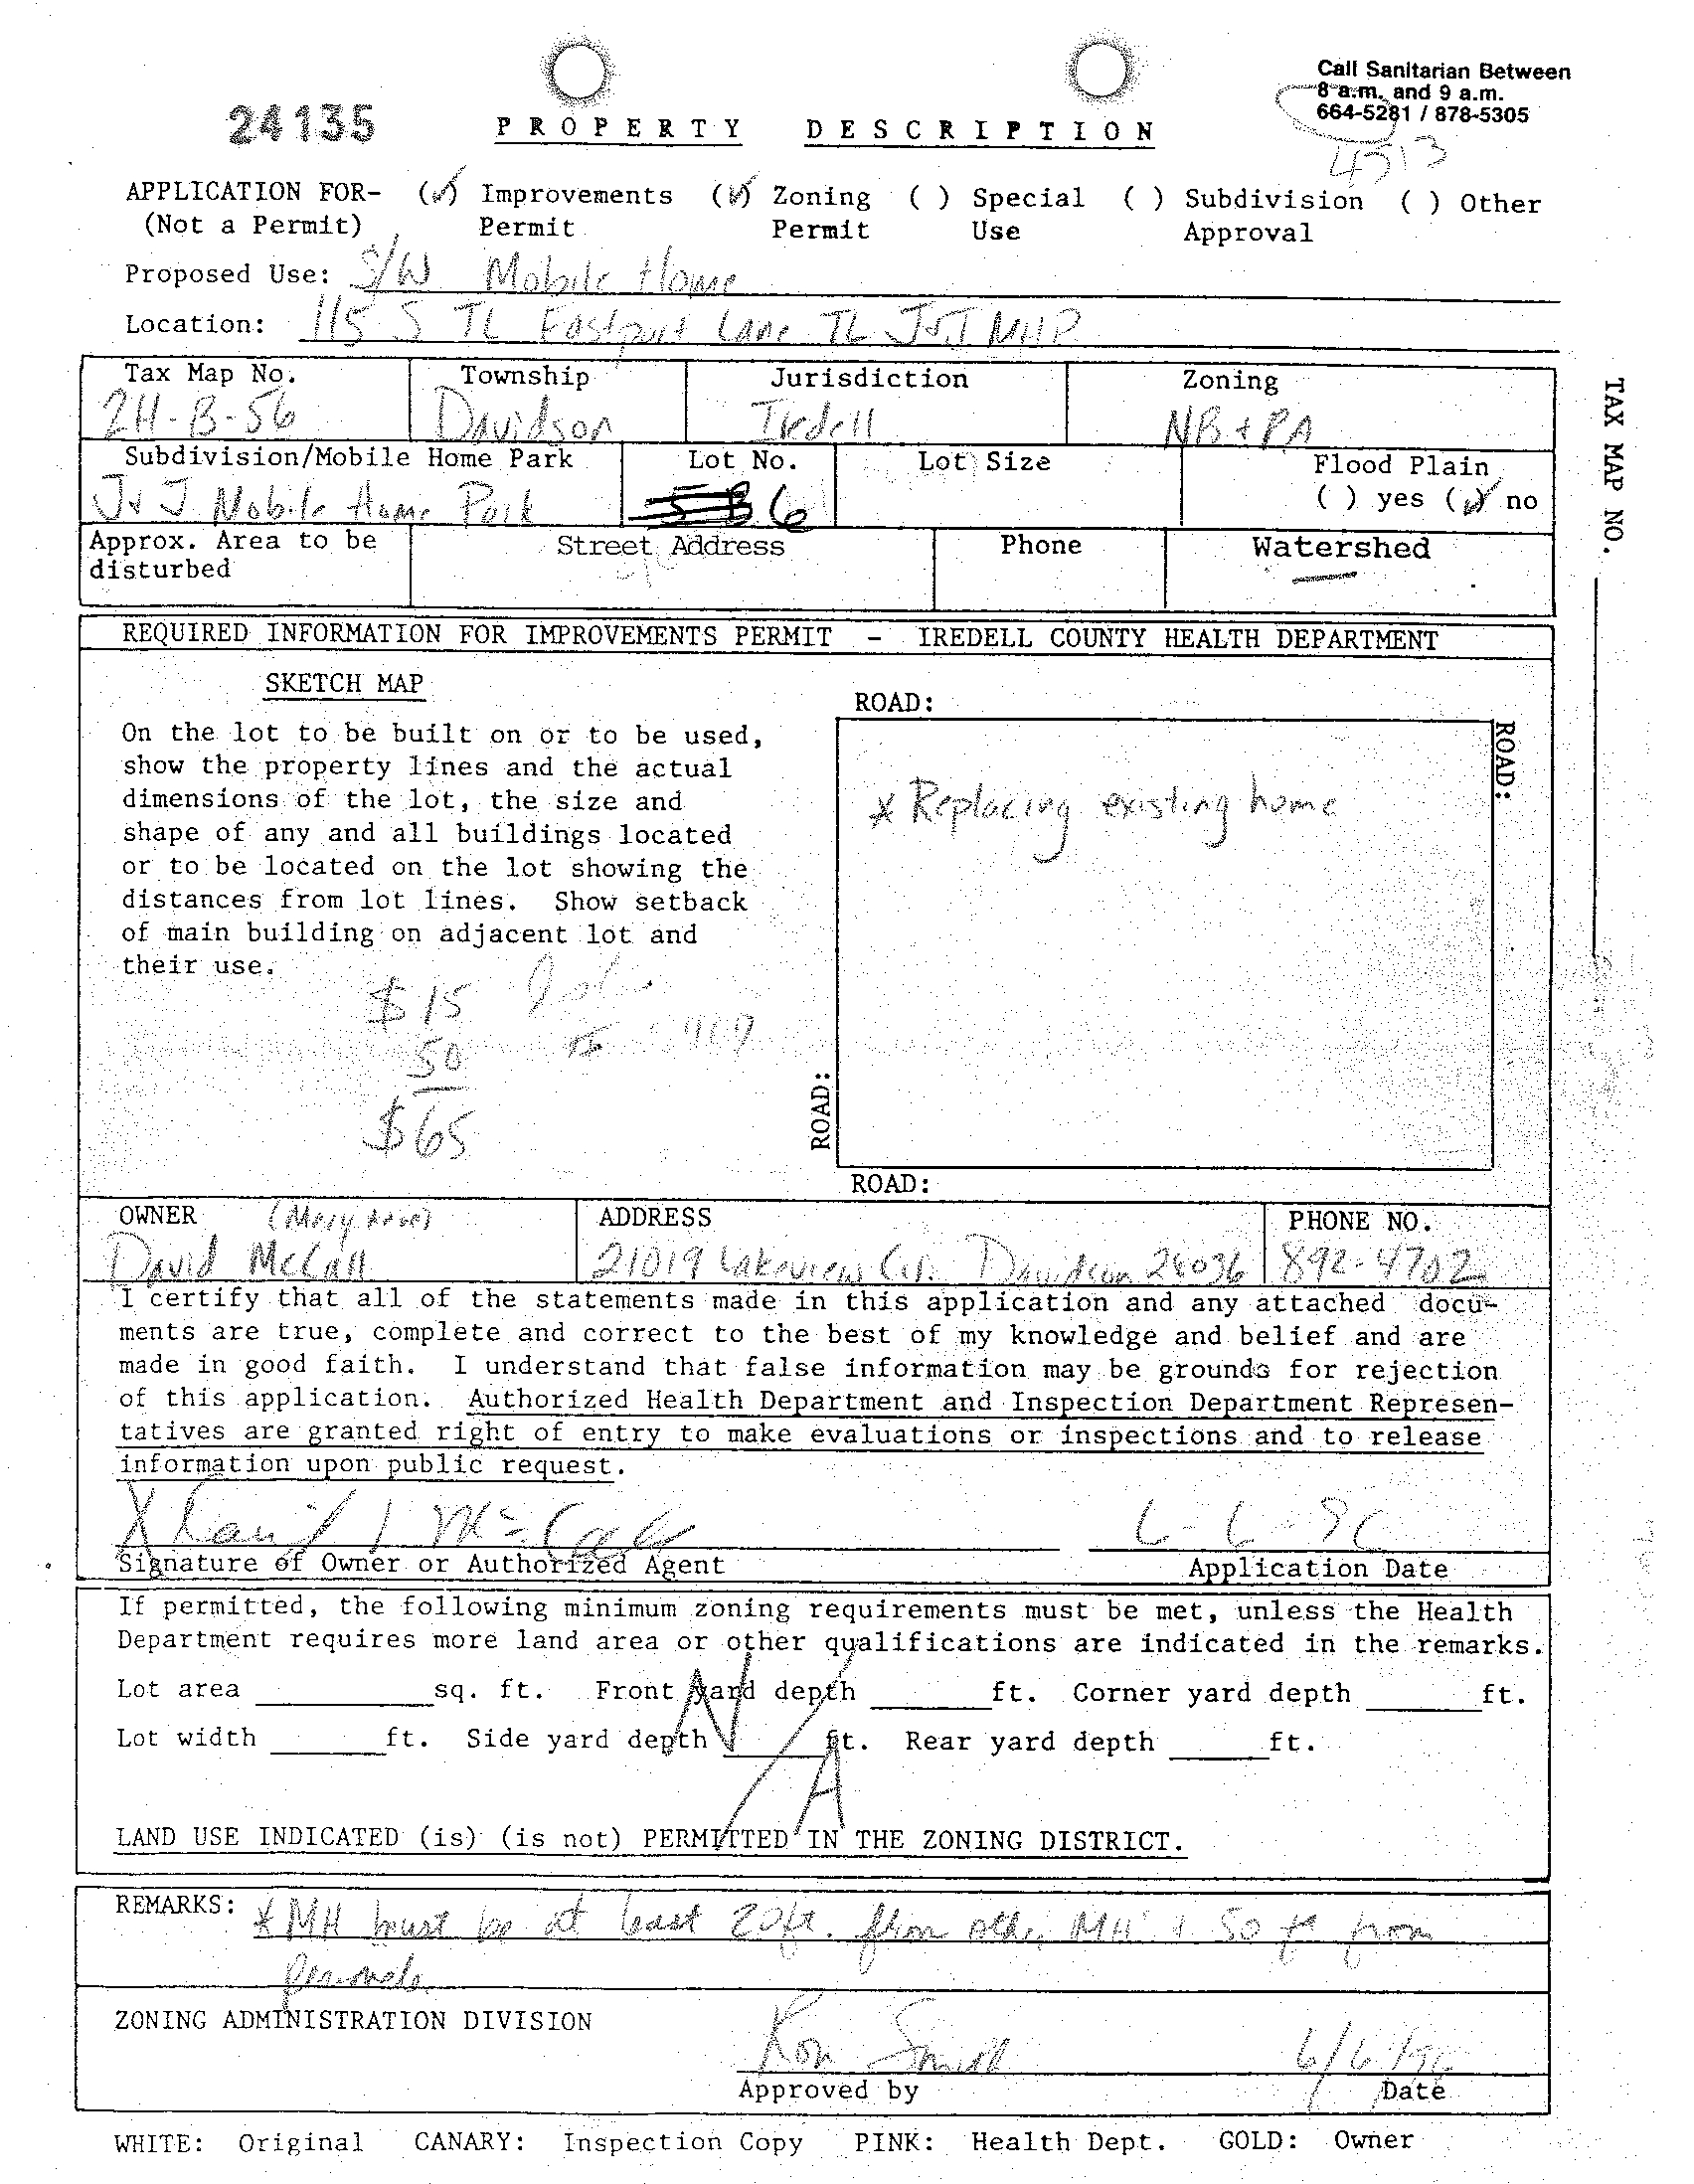 Call Sanitarian Between
8 a.m. and 9 a.m.
664-5281 / 878-5305
4513
24135 PROPERTY DESCRIPTION
APPLICATION FOR- (✓) Improvements (✓) Zoning ( ) Special ( ) Subdivision ( ) Other
(Not a Permit) Permit Permit Use Approval
Proposed Use: S/W Mobile Home
Location: 115 S TL Eastport Lane TL J&J MHP
Tax Map No. Township Jurisdiction Zoning
2H-B-56 Davidson Iredell NB + RA
Subdivision/Mobile Home Park Lot No. Lot Size Flood Plain
J & J Mobile Home Park 6 ( ) yes (✓) no
Approx. Area to be Street Address Phone Watershed
disturbed
TAX MAP NO.
REQUIRED INFORMATION FOR IMPROVEMENTS PERMIT - IREDELL COUNTY HEALTH DEPARTMENT
SKETCH MAP
On the lot to be built on or to be used,
show the property lines and the actual
dimensions of the lot, the size and
shape of any and all buildings located
or to be located on the lot showing the
distances from lot lines. Show setback
of main building on adjacent lot and
their use.
$15
50
$65
ROAD:
ROAD:
* Replacing existing home
ROAD:
ROAD:
OWNER ADDRESS PHONE NO.
David McCall 21019 Lakeview Cir. Davidson 28036 892-4702
I certify that all of the statements made in this application and any attached docu-
ments are true, complete and correct to the best of my knowledge and belief and are
made in good faith. I understand that false information may be grounds for rejection
of this application. Authorized Health Department and Inspection Department Represen-
tatives are granted right of entry to make evaluations or inspections and to release
information upon public request.
X David L McCall 6-6-96
Signature of Owner or Authorized Agent Application Date
If permitted, the following minimum zoning requirements must be met, unless the Health
Department requires more land area or other qualifications are indicated in the remarks.
Lot area sq. ft. Front yard depth ft. Corner yard depth ft.
Lot width ft. Side yard depth ft. Rear yard depth ft.
N/A
LAND USE INDICATED (is) (is not) PERMITTED IN THE ZONING DISTRICT.
REMARKS: * MH must be at least 20ft. from other MH's + 50 ft from
ZONING ADMINISTRATION DIVISION
Ron Smith 6/6/96
Approved by Date
WHITE: Original CANARY: Inspection Copy PINK: Health Dept. GOLD: Owner